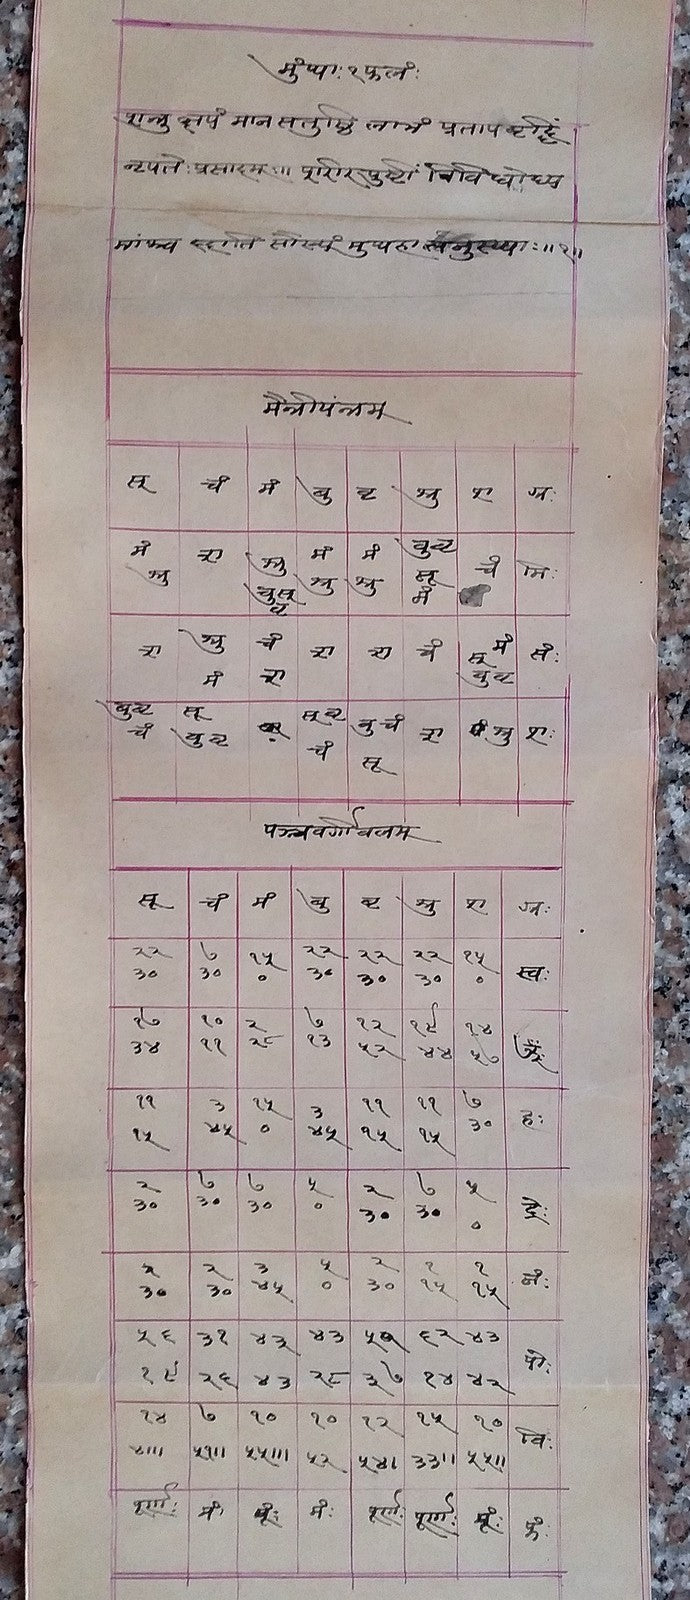 मुंथाः १ फलंः
शत्रु क्षयं मानसतुष्टि लाभं प्रतापवृद्धिं
नृपतेः प्रसादम् ।। शरीरपुष्टिं विविधोद्य
मांश्च ददाति सौख्यं मुथहा तनुस्था ः ।। १ ।।
मैत्रीचक्रम
सू चं मं बु वृ शु श ग्रः
मं श बु मं मं बु वृ चं मिः
शु शु सू शु शु सू
मं
श शु चं श श चं मं संः
मं श सू
बु वृ
बु वृ सू सू वृ बु चं श शु शः
चं बु वृ चं सू
पञ्चवर्गीबलम
सू चं मं बु वृ शु श ग्रः
२२ ७ १५ २२ २२ २२ १५ स्वः
३० ३० ० ३० ३० ३० ०
१७ १० २ ७ १२ १९ १४
३४ ११ २८ १३ ५२ ४४ ५७
११ ३ १५ ३ ११ ११ ७ हः
१५ ४५ ० ४५ १५ १५ ३०
२ ७ ७ ५ २ ७ ५ द्रेः
३० ३० ३० ० ३० ३० ०
२ २ ३ ५ २ १ १ नंः
३० ३० ४५ ० ३० १५ १५
५६ ३१ ४३ ४३ ५१ ६२ ४३ योः
१९ २६ ४३ २८ ३७ १४ ४२
१४ ७ १० १० १२ १५ १० विः
४।।। ५१।। ५५।।। ५२ ५४। ३३।। ५५।।
पूर्णः मं मः मः पूर्णः पूर्णः मः फंः